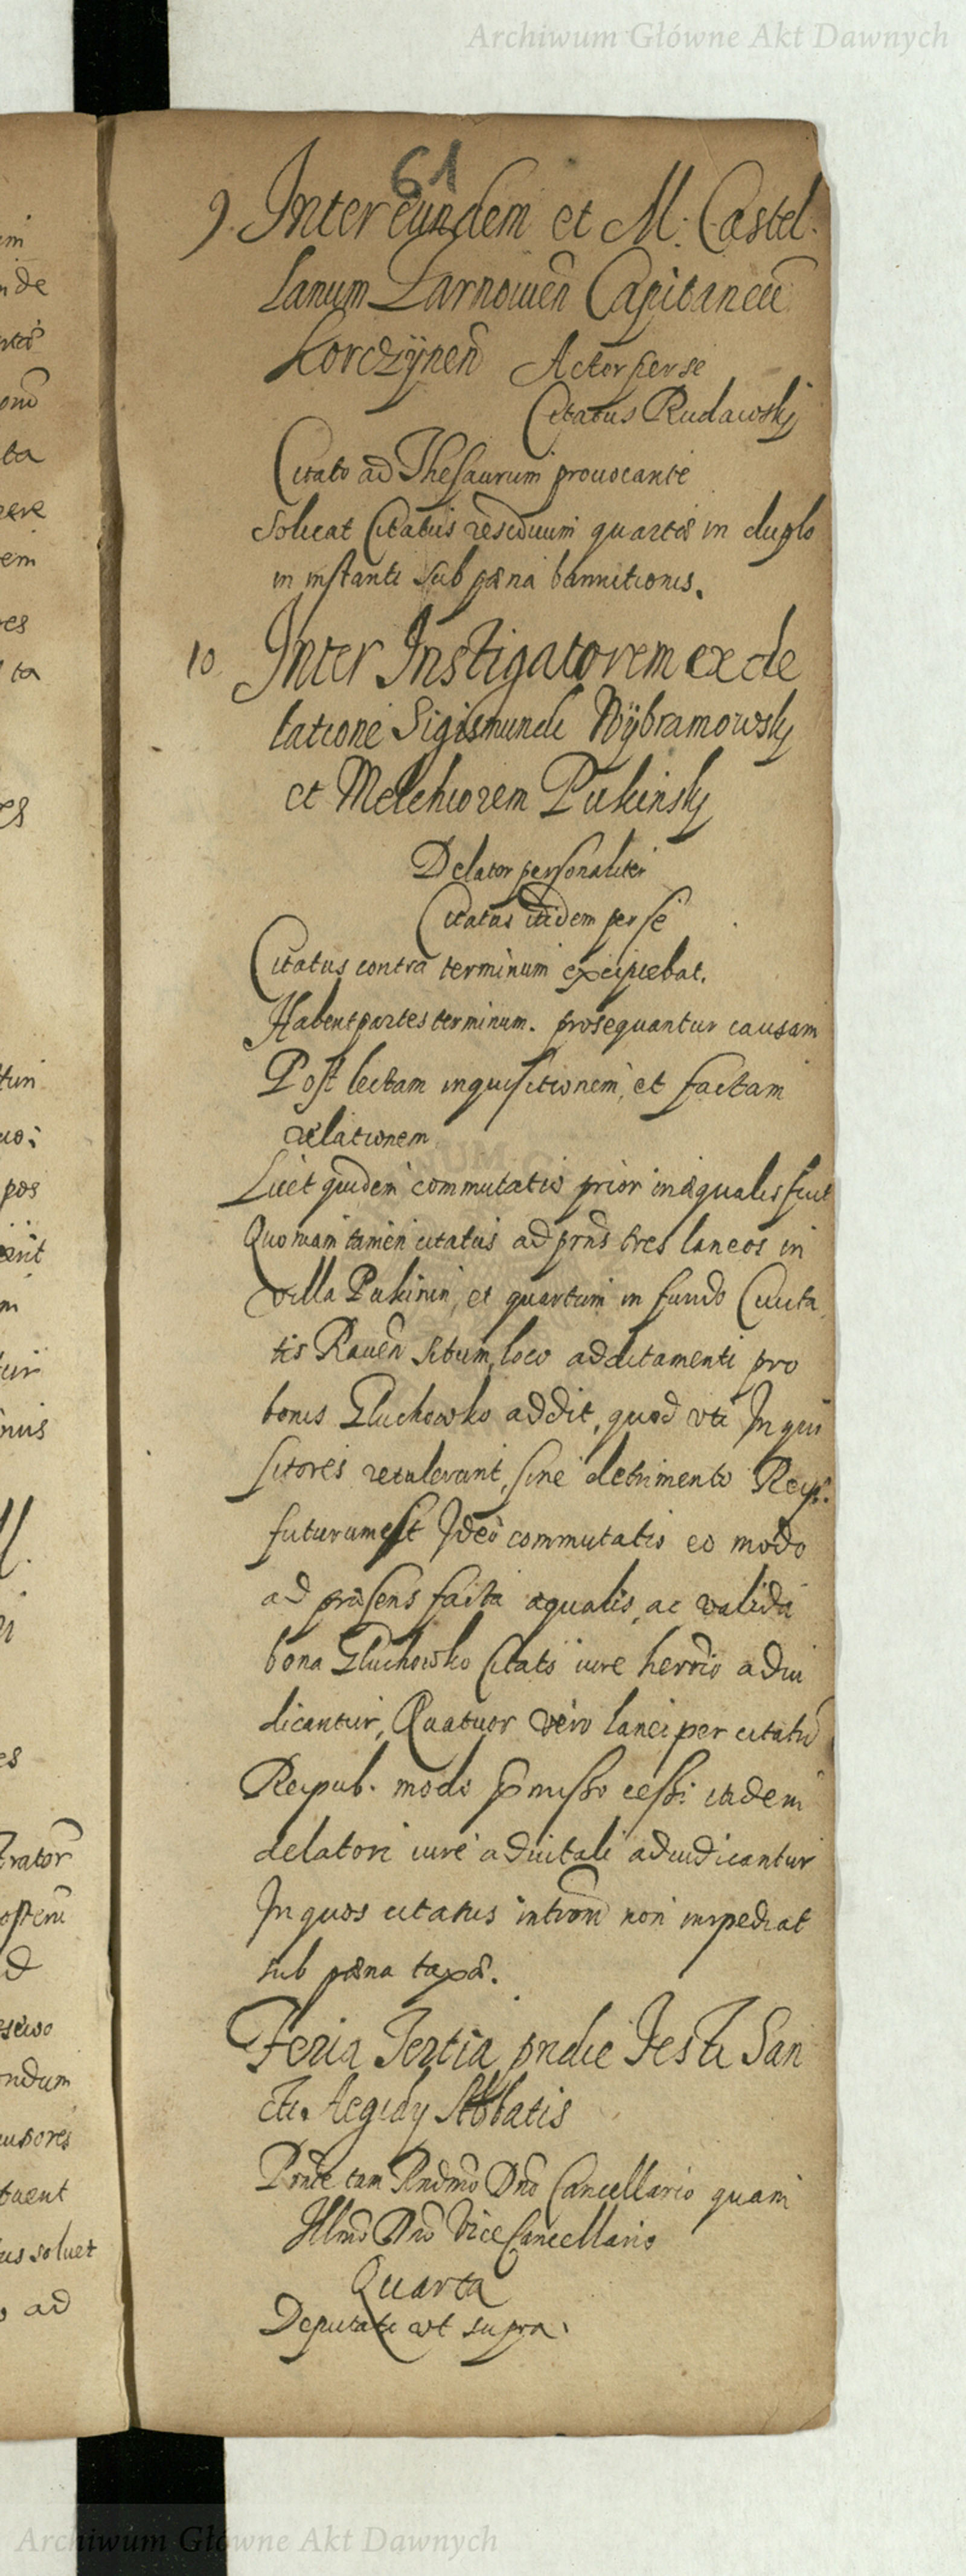 Archiwum Główne Akt Dawnych
61
9. Inter eundem et M. Castel-
lanum Tarnowien̄ Capitaneū
Korczÿnen̄ Actor per se
Citatus Rudawskj
Citato ad Thesaurum prouocante
Soluat Citatus residuum quartæ in duplo
in instanti sub pæna bannitionis.
10 Inter Instigatorem ex de
latione Sigismundi Wÿbramowskj
et Melchiorem Pukinskj
Delator personaliter
Citatus itidem per se
Citatus contra terminum excipiebat.
Habent partes terminum. prosequantur causam
Post lectam inquisitionem, et factam
relationem
Licet quidem commutatio prior inæqualis fuit
Quoniam tamen citatus ad prn̄s tres laneos in
villa Pukinin, et quartum in fundo Ciuita
tis Rauen̄ situm, loco additamenti pro
bonis Gluchowko addit, quod vti Inqui
sitores retulerunt, sine detrimento Reip:
futurum est Ideo commutatio eo modo
ad præsens facta æqualis, ac valida
bona Gluchowko Citato iure herr̄io adiu
dicantur, Quatuor vero lanei per citatū
Reipub. modo p̄misso cessi itidem
delatori iure aduitali adiudicantur
In quos citatus introm̄ non impediat
sub pæna taxæ.
Feria Tertia pridie Festi San
cti Aegidy Abbatis
Prn̄te tam Rndm̄o Dn̄o Cancellario quam
Illmō Dn̄o ViceCancellario
Quarta
Deputati vt supra.
im
nde
ta
em
res
ta
es
tur
uo:
pos
m
tur
nus
es
trator
d
ndum
tuent
us soluet
ad
Archiwum Główne Akt Dawnych